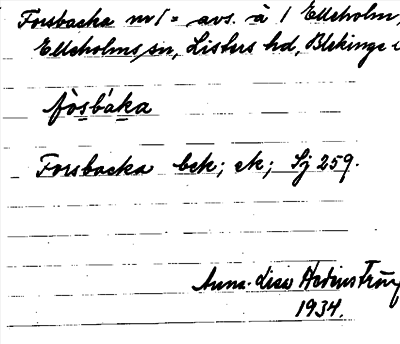 Forsbacka nr 1 = avs. å 1 Elleholm,
Elleholms sn, Listers hd, Blekinge
fòsbáka
Forsbacka bek; ek; Sj 259.
Anna-Lisa Hedenström
1934.